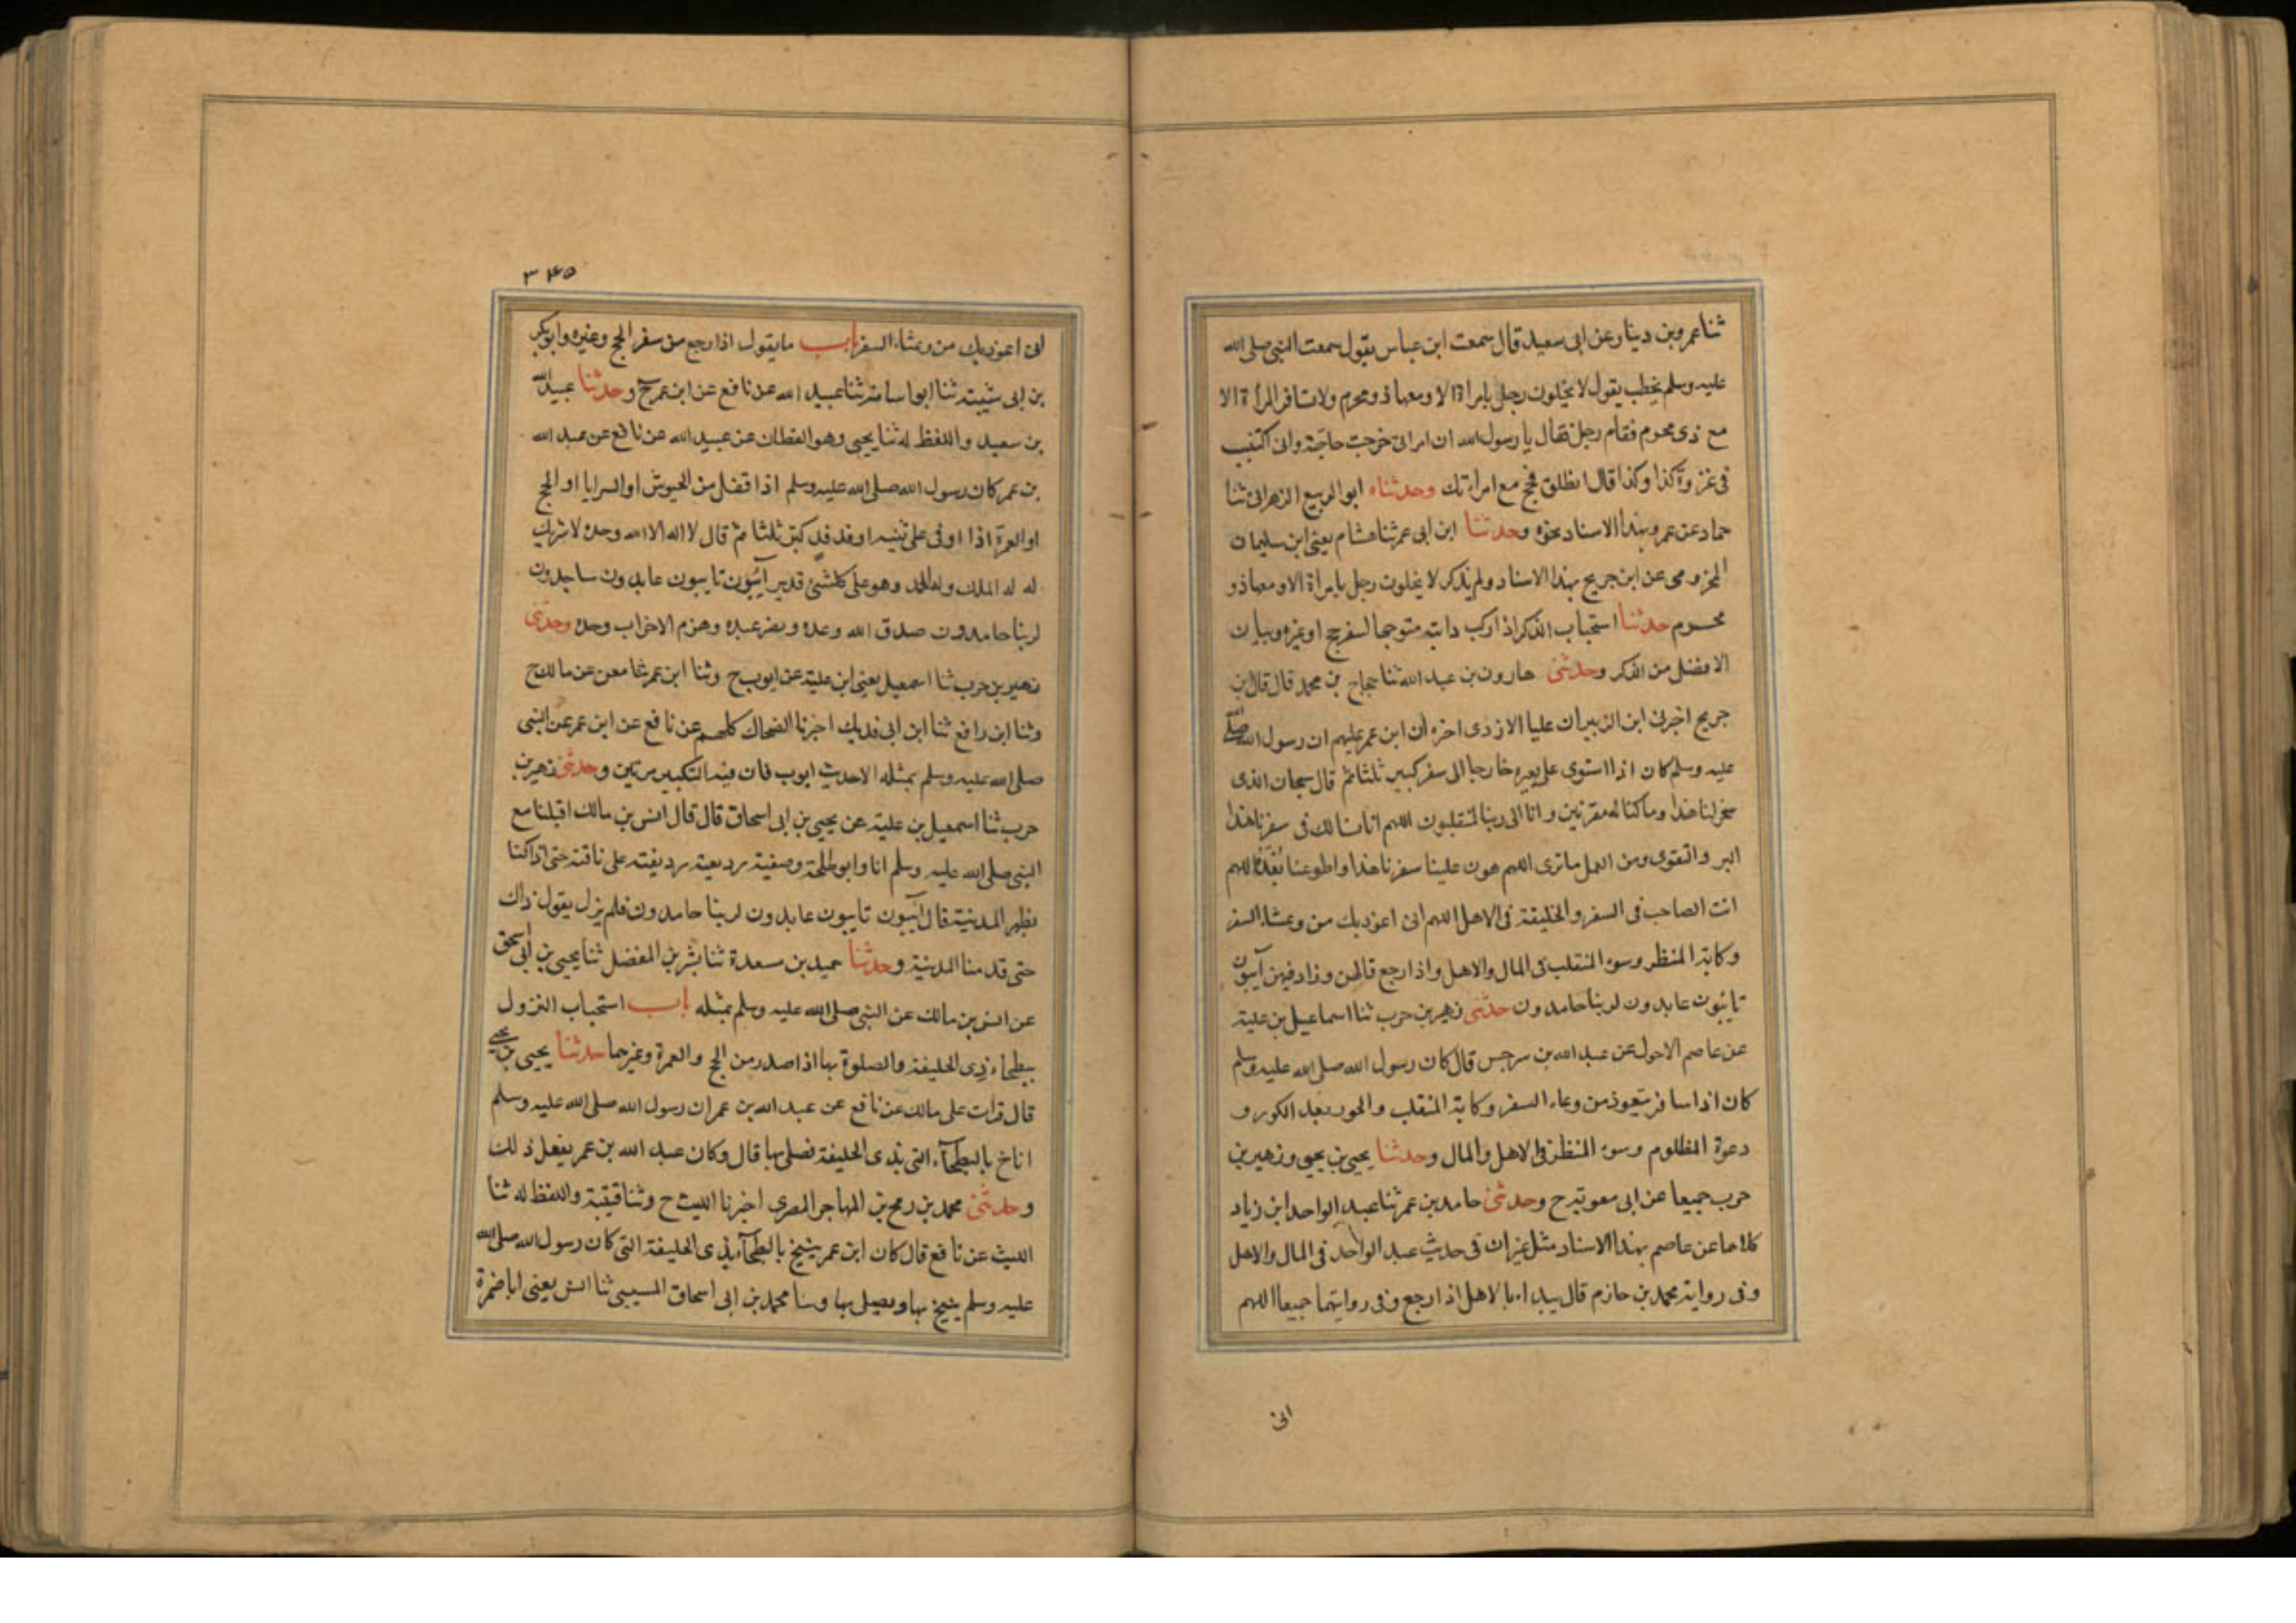 ثنا عمرو بن دينار عن ابى سعيد قال سمعت ابن عباس يقول سمعت النبى صلى الله
عليه وسلم يخطب يقول لا يخلون رجل بامراة الا ومعها ذو محرم ولا تسافر المرأة الا
مع ذى محرم فقام رجل فقال يا رسول الله ان امراتى خرجت حاجة وانى اكتتبت
فى غزوة كذا وكذا قال انطلق فحج مع امراتك وحدثناه ابو الربيع الزهرانى ثنا
حماد عن عمرو بهذا الاسناد نحوه وحدثنا ابن ابى عمر ثنا هشام يعنى ابن سليمان
المخزومى عن ابن جريج بهذا الاسناد ولم يذكر لا يخلون رجل بامراة الا ومعها ذو
محرم حدثنا استحباب الذكر اذا ركب دابته متوجها لسفر حج او غيره وبيان
الافضل من الذكر وحدثنى هارون بن عبد الله ثنا حجاج بن محمد قال قال بن
جريج اخبرنى ابن الزبير ان عليا الازدى اخره ان ابن عمر عليهم ان رسول الله صلى
عليه وسلم كان اذا استوى على بعيره خارجا الى سفر كبر ثلثا ثم قال سبحان الذى
سخر لنا هذا وما كنا له مقرنين وانا الى ربنا لمنقلبون اللهم انا نسالك فى سفرنا هذا
البر والتقوى ومن العمل ما ترى اللهم هون علينا سفرنا هذا واطو عنا بعده اللهم
انت الصاحب فى السفر والخليفة فى الاهل اللهم انى اعوذ بك من وعثاء السفر
وكابة المنظر وسوء المنقلب فى المال والاهل واذا رجع قالهن وزاد فيهن آئبون
تائبون عابدون لربنا حامدون حدثنى زهير بن حرب ثنا اسماعيل بن علية
عن عاصم الاحول عن عبد الله بن سرجس قال كان رسول الله صلى الله عليه وسلم
كان اذا سافر يتعوذ من وعاء السفر وكابة المنقلب والحور بعد الكور و
دعوة المظلوم وسوء المنظر فى الاهل والمال وحدثنا يحيى بن يحيى وزهير بن
حرب جميعا عن ابى معوية ح وحدثنى حامد بن عمر ثنا عبد الواحد ابن زياد
كلاهما عن عاصم بهذا الاسناد مثل غير ان فى حديث عبد الواحد فى المال والاهل
وفى رواية محمد بن حازم قال يبداء بالاهل اذا رجع وفى روايتهما جميعا اللهم
انى
٣٤٥
انى اعوذ بك من وعثاء السفر باب ما يقول اذا رجع من سفر الحج وغيره وابو بكر
بن ابى شيبة ثنا ابو اسامة ثنا عبيد الله عن نافع عن ابن عمر ح وحدثنا عبيد الله
بن سعيد واللفظ له ثنا يحيى وهو القطان عن عبيد الله عن نافع عن عبد الله
بن عمر كان رسول الله صلى الله عليه وسلم اذا قفل من الجيوش او السرايا او الحج
او العمرة اذا اوفى على ثنية او فدفد كبر ثلثا ثم قال لا اله الا الله وحده لا شريك
له له الملك وله الحمد وهو على كلشئ قدير آئبون تايبون عابدون ساجدون
لربنا حامدون صدق الله وعده ونصر عبده وهزم الاحزاب وحده وحدثنى
زهير بن حرب ثنا اسمعيل يعنى ابن علية عن ايوب ح وثنا ابن عمر ثنا معن عن مالك ح
وثنا ابن رافع ثنا ابن ابى فديك اخبرنا الضحاك كلهم عن نافع عن ابن عمر عن النبى
صلى الله عليه وسلم بمثله الا حديث ايوب فان فيه التكبير مرتين وحدثنى زهير بن
حرب ثنا اسمعيل بن علية عن يحيى بن ابى اسحاق قال قال انس بن مالك اقبلنا مع
النبى صلى الله عليه وسلم انا وابو طلحة وصفية رديفته على ناقته حتى اذا كنا
بظهر المدينة قال آئبون تايبون عابدون لربنا حامدون فلم يزل يقول ذاك
حتى قدمنا المدينة وحدثنا حميد بن مسعدة ثنا بشر بن المفضل ثنا يحيى بن ابى اسحق
عن انس بن مالك عن النبى صلى الله عليه وسلم بمثله باب استحباب النزول
ببطحاء ذى الحليفة والصلوة بها اذا صدر من الحج والعمرة وغيرهما حدثنا يحيى بن يحيى
قال قرات على مالك عن نافع عن عبد الله بن عمر ان رسول الله صلى الله عليه وسلم
اناخ بالبطحآء التى بذى الحليفة فصلى بها قال وكان عبد الله بن عمر يفعل ذلك
وحدثنى محمد بن رمح بن المهاجر المصرى اخبرنا الليث ح وثنا قتيبة واللفظ له ثنا
الليث عن نافع قال كان ابن عمر ينيخ بالبطحآء بذى الحليفة التى كان رسول الله صلى الله
عليه وسلم ينيخ بها ويصلى بها وثنا محمد بن ابى اسحاق المسيبى ثنا انس يعنى ابا ضمرة